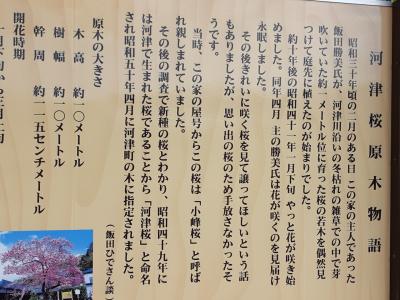 河津桜原木物語
昭和三十年頃の二月のある日この家の主人であった
飯田勝美氏が、河津川沿いの冬枯れの雑草の中で芽
吹いていた約一メートル位に育った桜の若木を偶然見
つけて庭先に植えたのが始まりでした。
約十年後の昭和四十一年一月下旬やっと花が咲き始
めました。同年四月 主の勝美氏は花が咲くのを見届け
永眠しました。
その後きれいに咲く桜を見て譲ってほしいという話
もありましたが、思い出の桜のため手放さなかったそ
うです。
当時、この家の屋号からこの桜は「小峰桜」と呼ば
れ親しまれていました。
その後の調査で新種の桜とわかり、昭和四十九年に
は河津で生まれた桜であることから「河津桜」と命名
され昭和五十年四月に河津町の木に指定されました。
(飯田ひでさん談)
原木の大きさ
木高 約一〇メートル
樹幅 約一〇メートル
幹周 約一一五センチメートル
開花時期